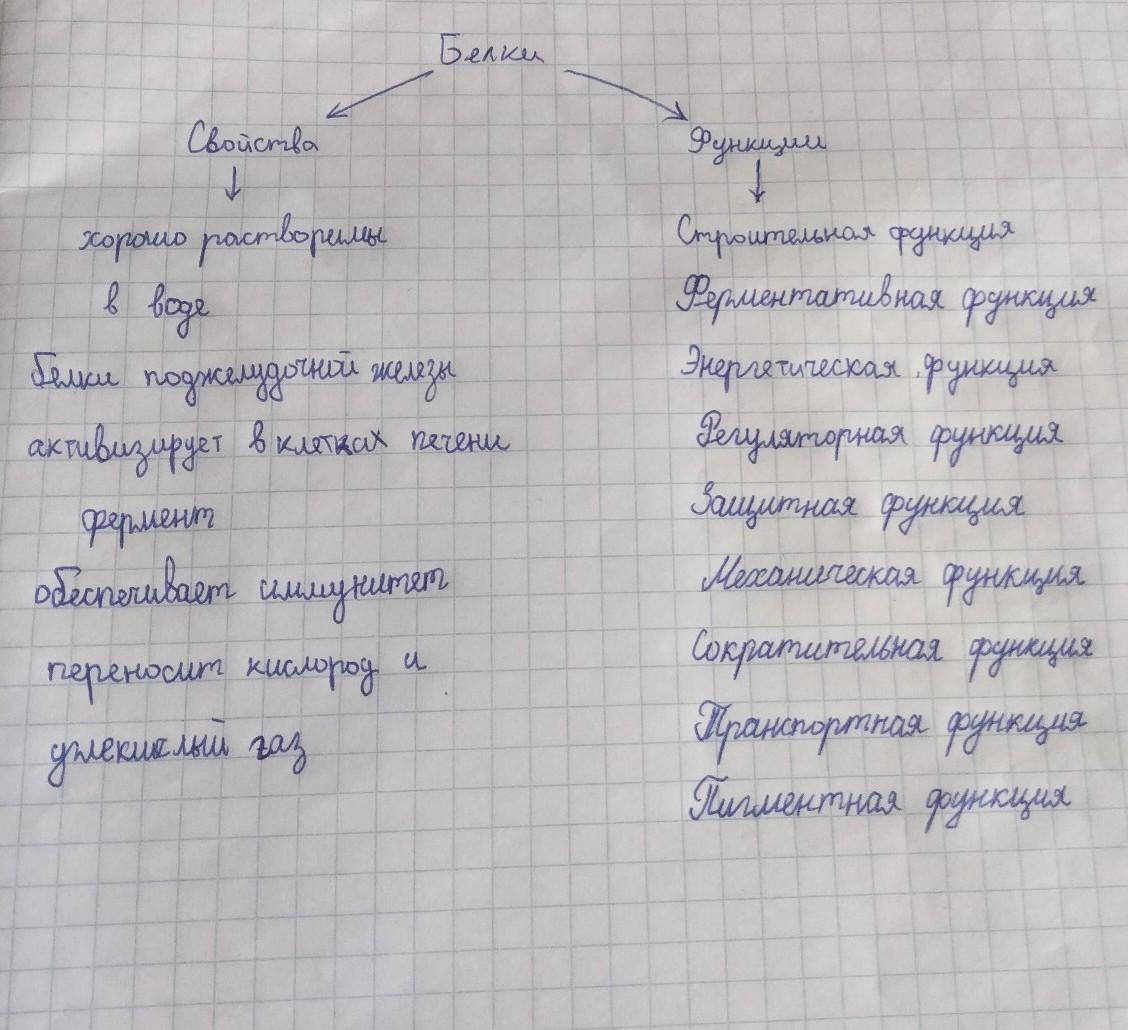 Белки
Свойства
хорошо растворимы
в воде
белки поджелудочной железы
активизирует в клетках печени
фермент
обеспечивает иммунитет
переносит кислород и
углекислый газ
Функции
Строительная функция
Ферментативная функция
Энергетическая функция
Регуляторная функция
Защитная функция
Механическая функция
Сократительная функция
Транспортная функция
Пигментная функция